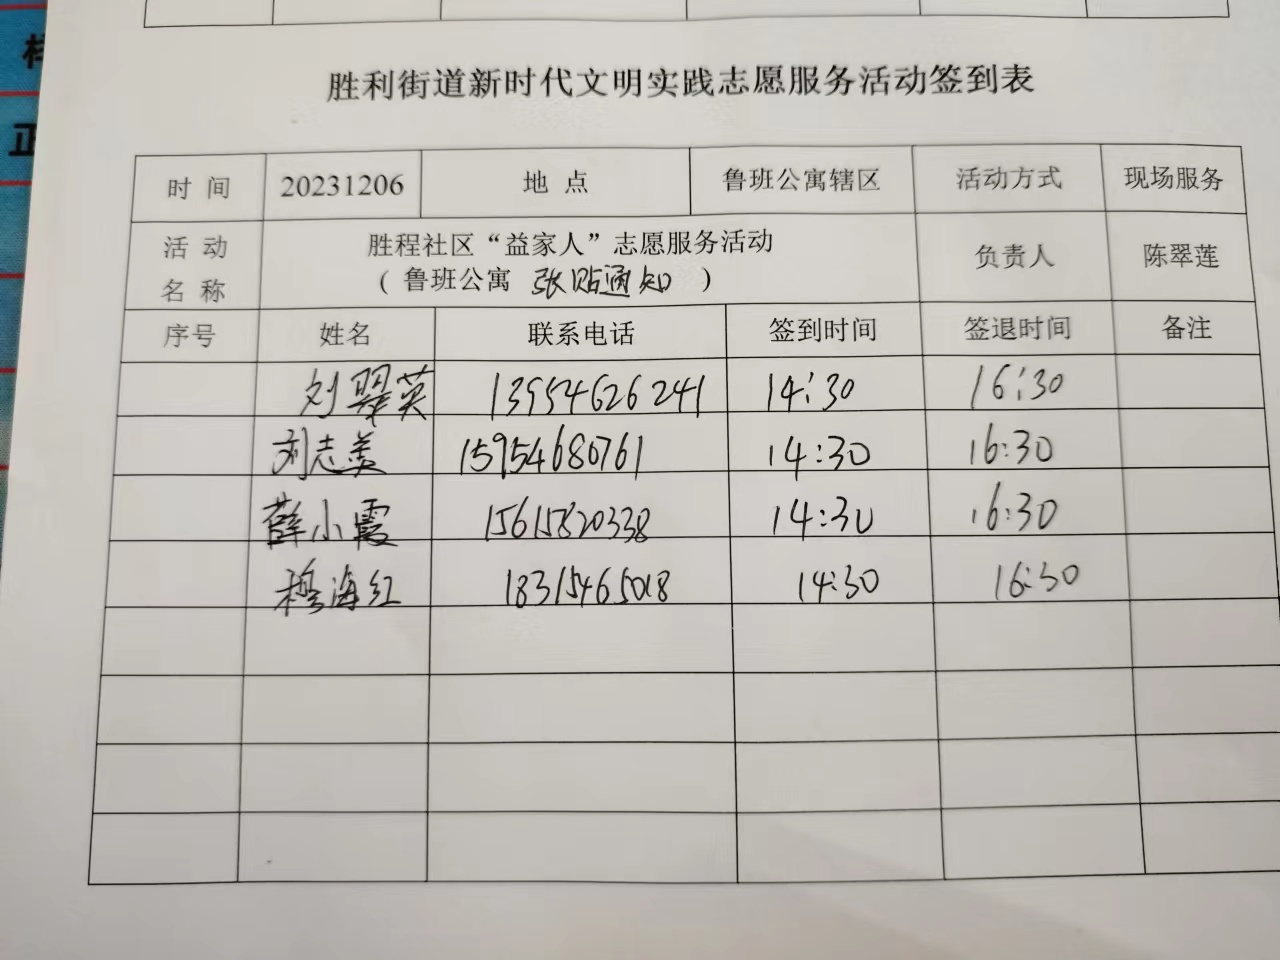 胜利街道新时代文明实践志愿服务活动签到表
时 间 20231206 地 点 鲁班公寓辖区 活动方式 现场服务
活 动 名 称 胜程社区“益家人”志愿服务活动 负责人 陈翠莲
(鲁班公寓 张贴通知 )
序号 姓名 联系电话 签到时间 签退时间 备注
刘翠英 13954626241 14:30 16:30
刘志美 15954680761 14:30 16:30
薛小霞 15615820338 14:30 16:30
穆海红 18315465018 14:30 16:30
正